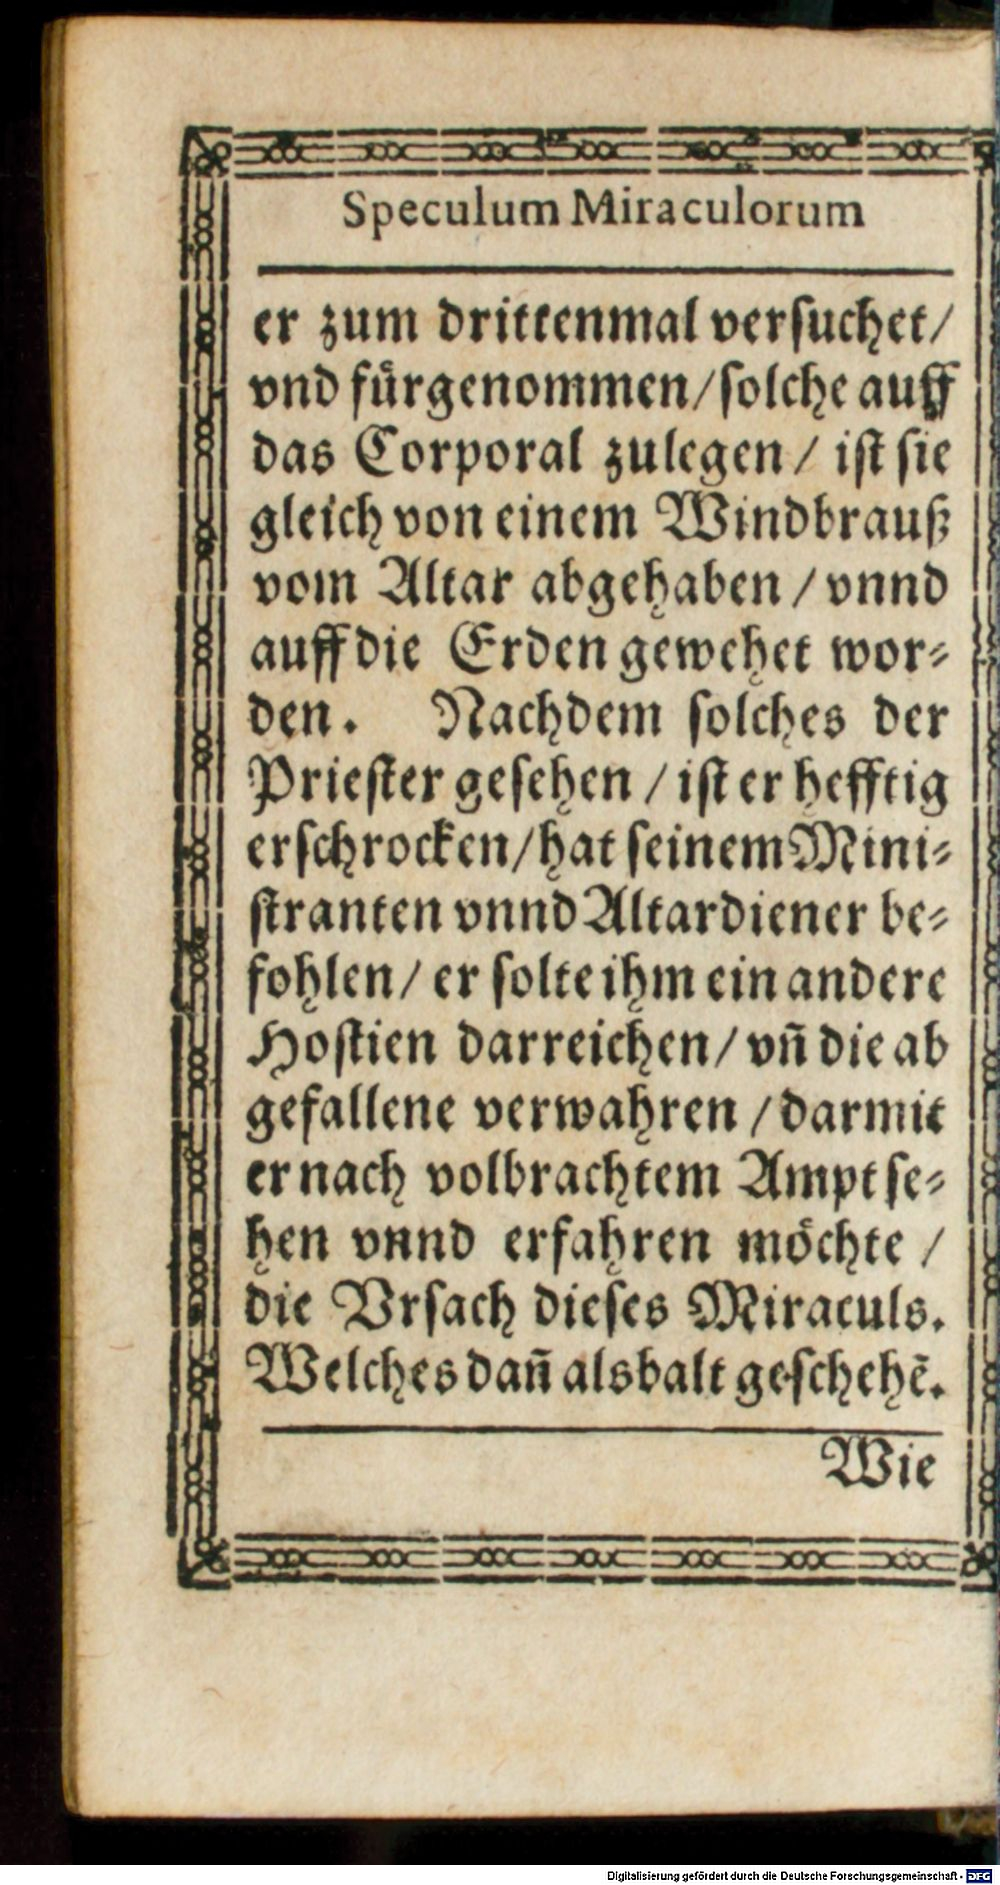 Speculum Miraculorum
er zum drittenmal versuchet/
vnd fürgenommen/solche auff
das Corporal zulegen / ist sie
gleich von einem Windbrauß
vom Altar abgehaben / vnnd
auff die Erden gewehet wor-
den. Nachdem solches der
Priester gesehen / ist er hefftig
erschrocken/hat seinem Mini-
stranten vnnd Altardiener be-
fohlen/ er solte ihm ein andere
Hostien darreichen/ vñ die ab
gefallene verwahren / darmit
er nach volbrachtem Ampt se-
hen vnnd erfahren möchte /
die Vrsach dieses Miraculs.
Welches dañ alsbalt geschehẽ.
Wie
Digitalisierung gefördert durch die Deutsche Forschungsgemeinschaft - DFG